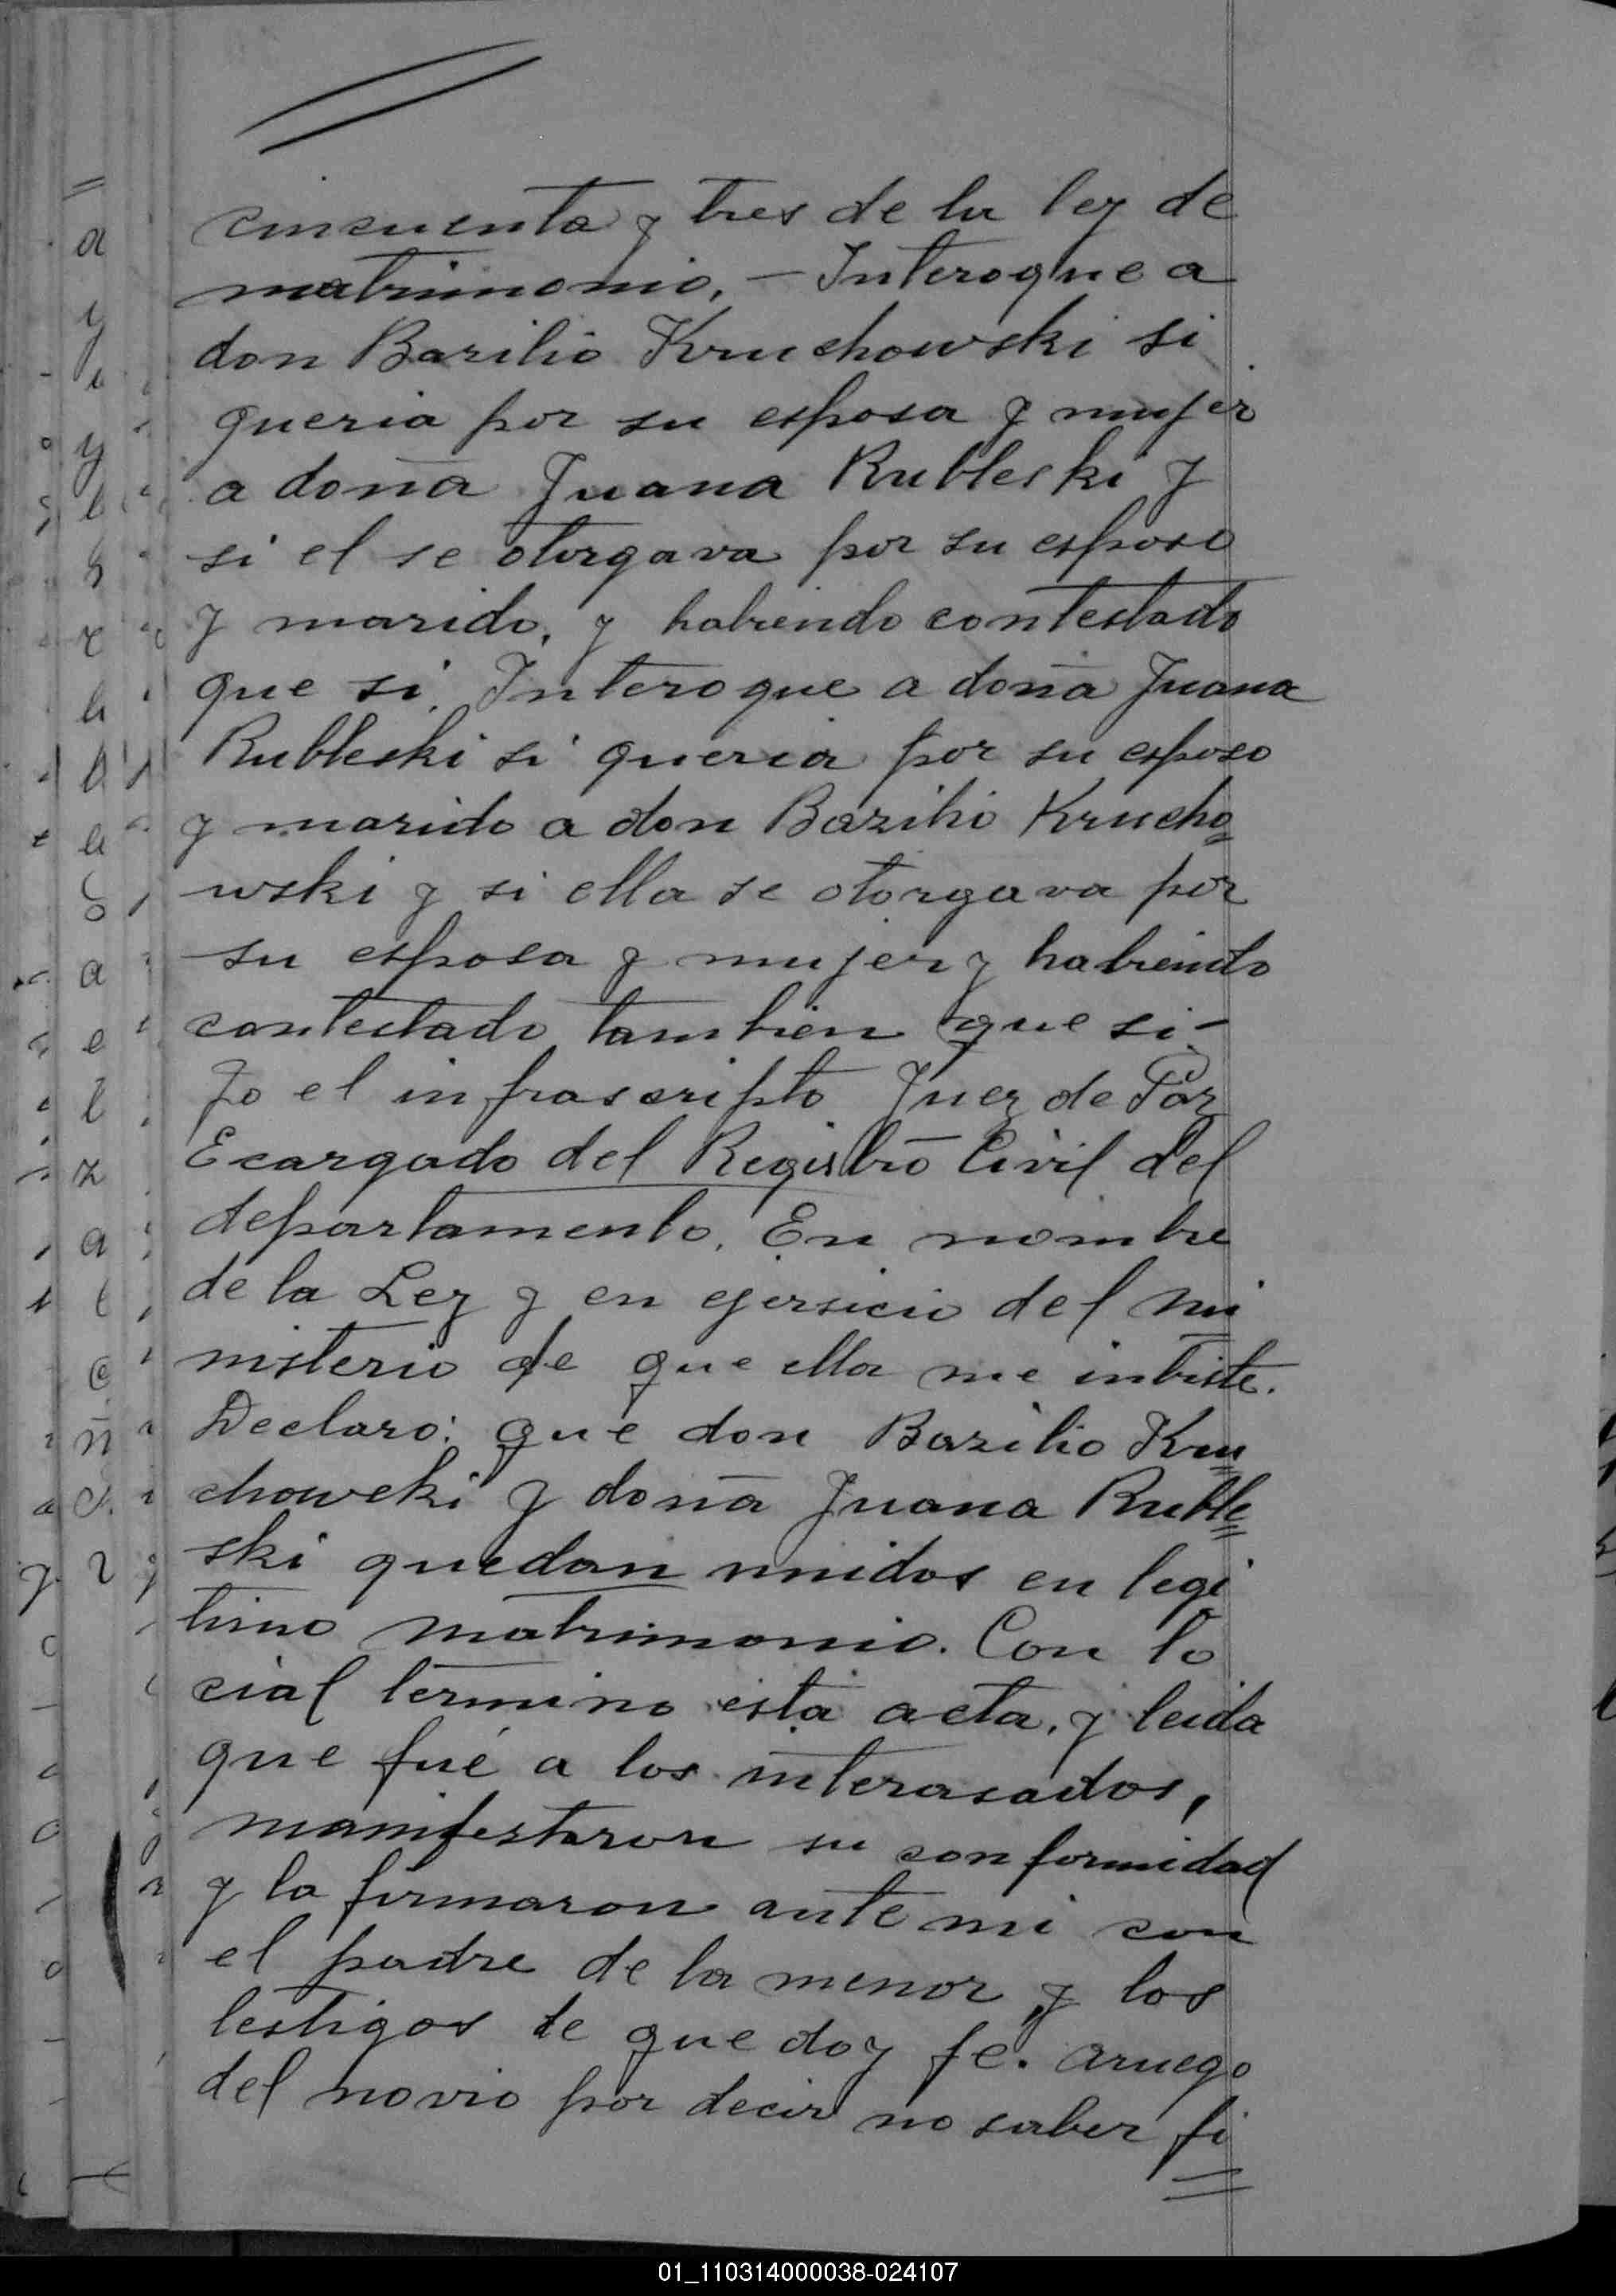 cincuenta y tres de la ley de
matrimonio. – Interogue a
don Bazilio Kruchowski si
queria por su esposa y mujer
a doña Juana Rubleski y
si el se otorgava por su esposo
y marido, y habiendo contestado
que si. Interogue a doña Juana
Rubleski si queria por su esposo
y marido a don Bazilio Krucho=
wski y si ella se otorgava por
su esposa y mujer y habiendo
contestado tambien que si –
Yo el infrascripto Juez de Paz
Ecargado del Registro Civil del
departamento. En nombre
de la Ley y en ejersicio del mi
nisterio de que ella me inbiste.
Declaro: que don Bazilio Kru=
chowcki y doña Juana Ruble=
ski quedan unidos en legi
timo matrimonio. Con lo
cial termino esta acta, y leida
que fué a los interasados,
manifestaron su conformidad
y la firmaron ante mi con
el padre de la menor y los
testigos de que doy fe. aruego
del novio por decir no saber fi=
01_110314000038-024107